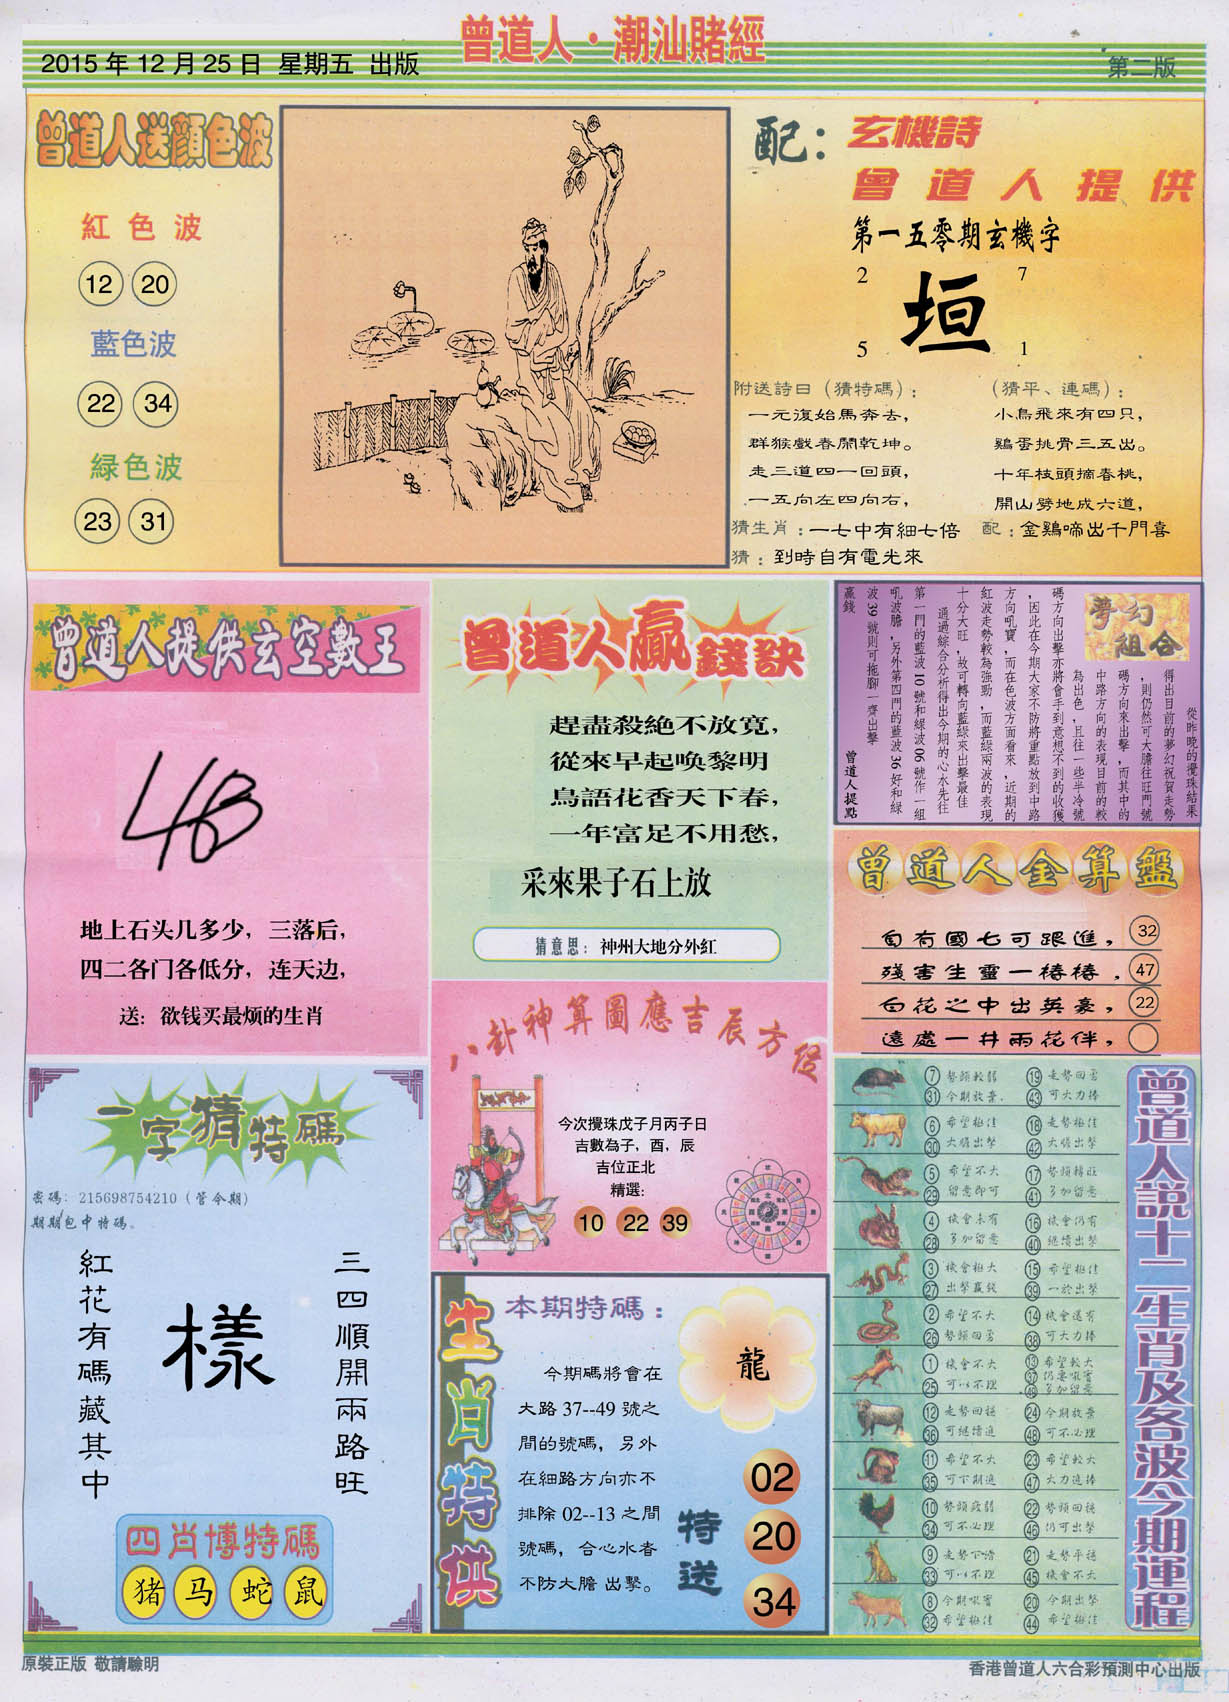 曾道人·潮汕賭經
2015年12月25日 星期五 出版
第二版
曾道人送顏色波
紅色波
12 20
藍色波
22 34
緑色波
23 31
配：玄機詩
曾道人提供
第一五零期玄機字
2 7
垣
5 1
附送詩曰（猜特碼）：
一元復始馬奔去，
群猴戲春鬧乾坤。
走三道四一回頭，
一五向左四向右，
（猜平、連碼）：
小鳥飛來有四只，
鷄蛋挑骨三五出。
十年枝頭摘春桃，
開山劈地成六道，
猜生肖：一七中有細七倍
配：金鷄啼出千門喜
猜：到時自有電光來
曾道人提供玄空數王
地上石头几多少，三落后，
四二各门各低分，连天边，
送：欲钱买最烦的生肖
曾道人贏錢訣
趕盡殺絶不放寬，
從來早起喚黎明
鳥語花香天下春，
一年富足不用愁，
采來果子石上放
猜意思：神州大地分外紅
夢幻
組合
從昨晚的攪珠結果
得出目前的夢幻祝賀走勢
，則仍然可大膽往旺門號
碼方向來出擊，而其中的
中路方向的表現目前的較
為出色，且往一些半冷號
碼方向出擊亦將會手到意想不到的收獲
，因此在今期大家不防將重點放到中路
方向吼寶，而在色波方面看來，近期的
紅波走勢較為強勁，而藍綠兩波的表現
十分大旺，故可轉向藍綠來出擊最佳
通過綜合分析得出今期的心水先往
第一門的藍波10號和綠波06號作一組
吼波膽，另外第四門的藍波36好和綠
波39號則可拖腳一齊出擊
贏錢
曾道人提點
曾道人金算盤
自有國七可跟進， 32
殘害生靈一樁樁． 47
百花之中出英豪， 22
遠處一井兩花伴，
八卦神算圖應吉辰方位
今次攪珠戊子月丙子日
吉數為子，酉，辰
吉位正北
精選：
10 22 39
一字猜特碼
密碼：215698754210（管今期）
期期包中特碼。
三四順開兩路旺
樣
紅花有碼藏其中
四肖博特碼
猪 马 蛇 鼠
生肖特供
本期特碼：
龍
今期碼將會在
大路37--49號之
間的號碼，另外
在細路方向亦不
排除02--13之間
號碼，合心水者
不防大膽出擊。
特送
02
20
34
曾道人説十二生肖及各波今期運程
7 勢頭較弱 19 走勢回勇
31 今期放棄． 43 可大力捧
6 希望極佳 18 走勢極佳
30 大膽出擊 42 大膽出擊
5 希望不大 17 勢頭轉旺
29 留意即可 41 多加留意
4 機會未有 16 機會仍有
28 多加留意 40 繼續出擊
3 機會極大 15 希望極佳
27 出擊贏錢 39 一於出擊
2 希望不大 14 機會還有
26 勢頭回勇 38 可大力捧
1 機會不大 13 希望較大
25 可以不理 37 仍要吼實
49 多加留意
12 走勢回穩 24 今期放棄
36 可繼續追 48 可不必理
11 希望不大 23 希望較大
35 可下期追 47 大力追捧
10 勢頭疲弱 22 勢頭回穩
34 可不必理 46 仍可出擊
9 走勢下滑 21 走勢平穩
33 可以不理 45 機會不大
8 今期吼實 20 今期出擊
32 希望極佳 44 希望極佳
原裝正版 敬請驗明
香港曾道人六合彩預測中心出版